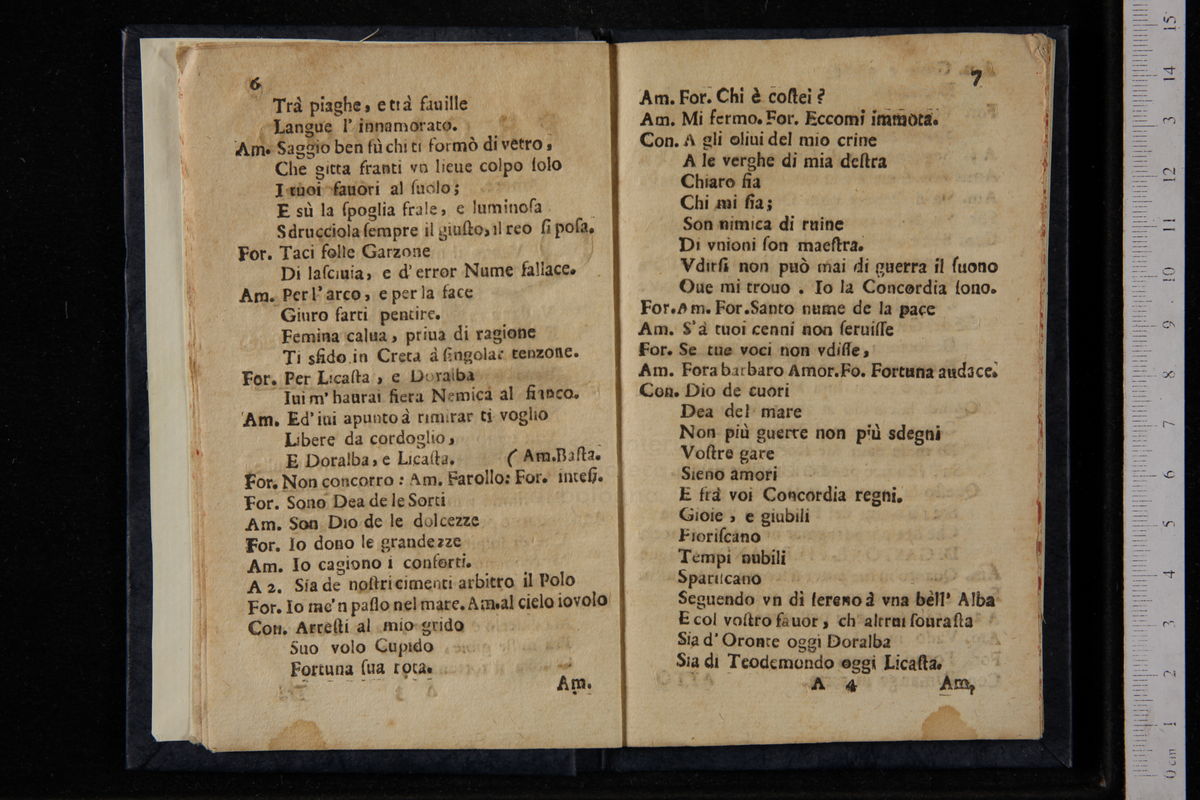 6
Trà piaghe, e trà fauille
Langue l' innamorato.
Am. Saggio ben fù chi ti formò di vetro,
Che gitta franti vn lieue colpo ſolo
I tuoi fauori al ſuolo;
E sù la ſpoglia frale, e luminoſa
Sdrucciola ſempre il giuſto, il reo ſi poſa.
For. Taci folle Garzone
Di laſciuia, e d'error Nume fallace.
Am. Per l'arco, e per la face
Giuro farti pentire.
Femina calua, priua di ragione
Ti sfido in Creta à ſingolar tenzone.
For. Per Licaſta, e Doralba
Iui m'haurai fiera Nemica al fianco.
Am. Ed'iui apunto à rimirar ti voglio
Libere da cordoglio,
E Doralba, e Licaſta. (Am. Baſta.
For. Non concorro: Am. Farollo: For. inteſi.
For. Sono Dea de le Sorti
Am. Son Dio de le dolcezze
For. Io dono le grandezze
Am. Io cagiono i conforti.
A 2. Sia de noſtri cimenti arbitro il Polo
For. Io me'n paſſo nel mare. Am. al cielo io volo
Con. Arreſti al mio grido
Suo volo Cupido
Fortuna ſua rota.
Am.
7
Am. For. Chi è coſtei?
Am. Mi fermo. For. Eccomi immota.
Con. A gli oliui del mio crine
A le verghe di mia deſtra
Chiaro ſia
Chi mi ſia;
Son nimica di ruine
Di vnioni ſon maeſtra.
Vdirſi non può mai di guerra il ſuono
Oue mi trouo. Io la Concordia ſono.
For. Am. For. Santo nume de la pace
Am. S'à tuoi cenni non ſeruiſſe
For. Se tue voci non vdiſſe,
Am. Fora barbaro Amor. Fo. Fortuna audace.
Con. Dio de cuori
Dea del mare
Non più guerre non più sdegni
Voſtre gare
Sieno amori
E frà voi Concordia regni.
Gioie, e giubili
Fioriſcano
Tempi nubili
Spariſcano
Seguendo vn dì ſereno à vna bell' Alba
E col voſtro fauor, ch' altrui ſouraſta
Sia d'Oronte oggi Doralba
Sia di Teodemondo oggi Licaſta.
A 4 Am,